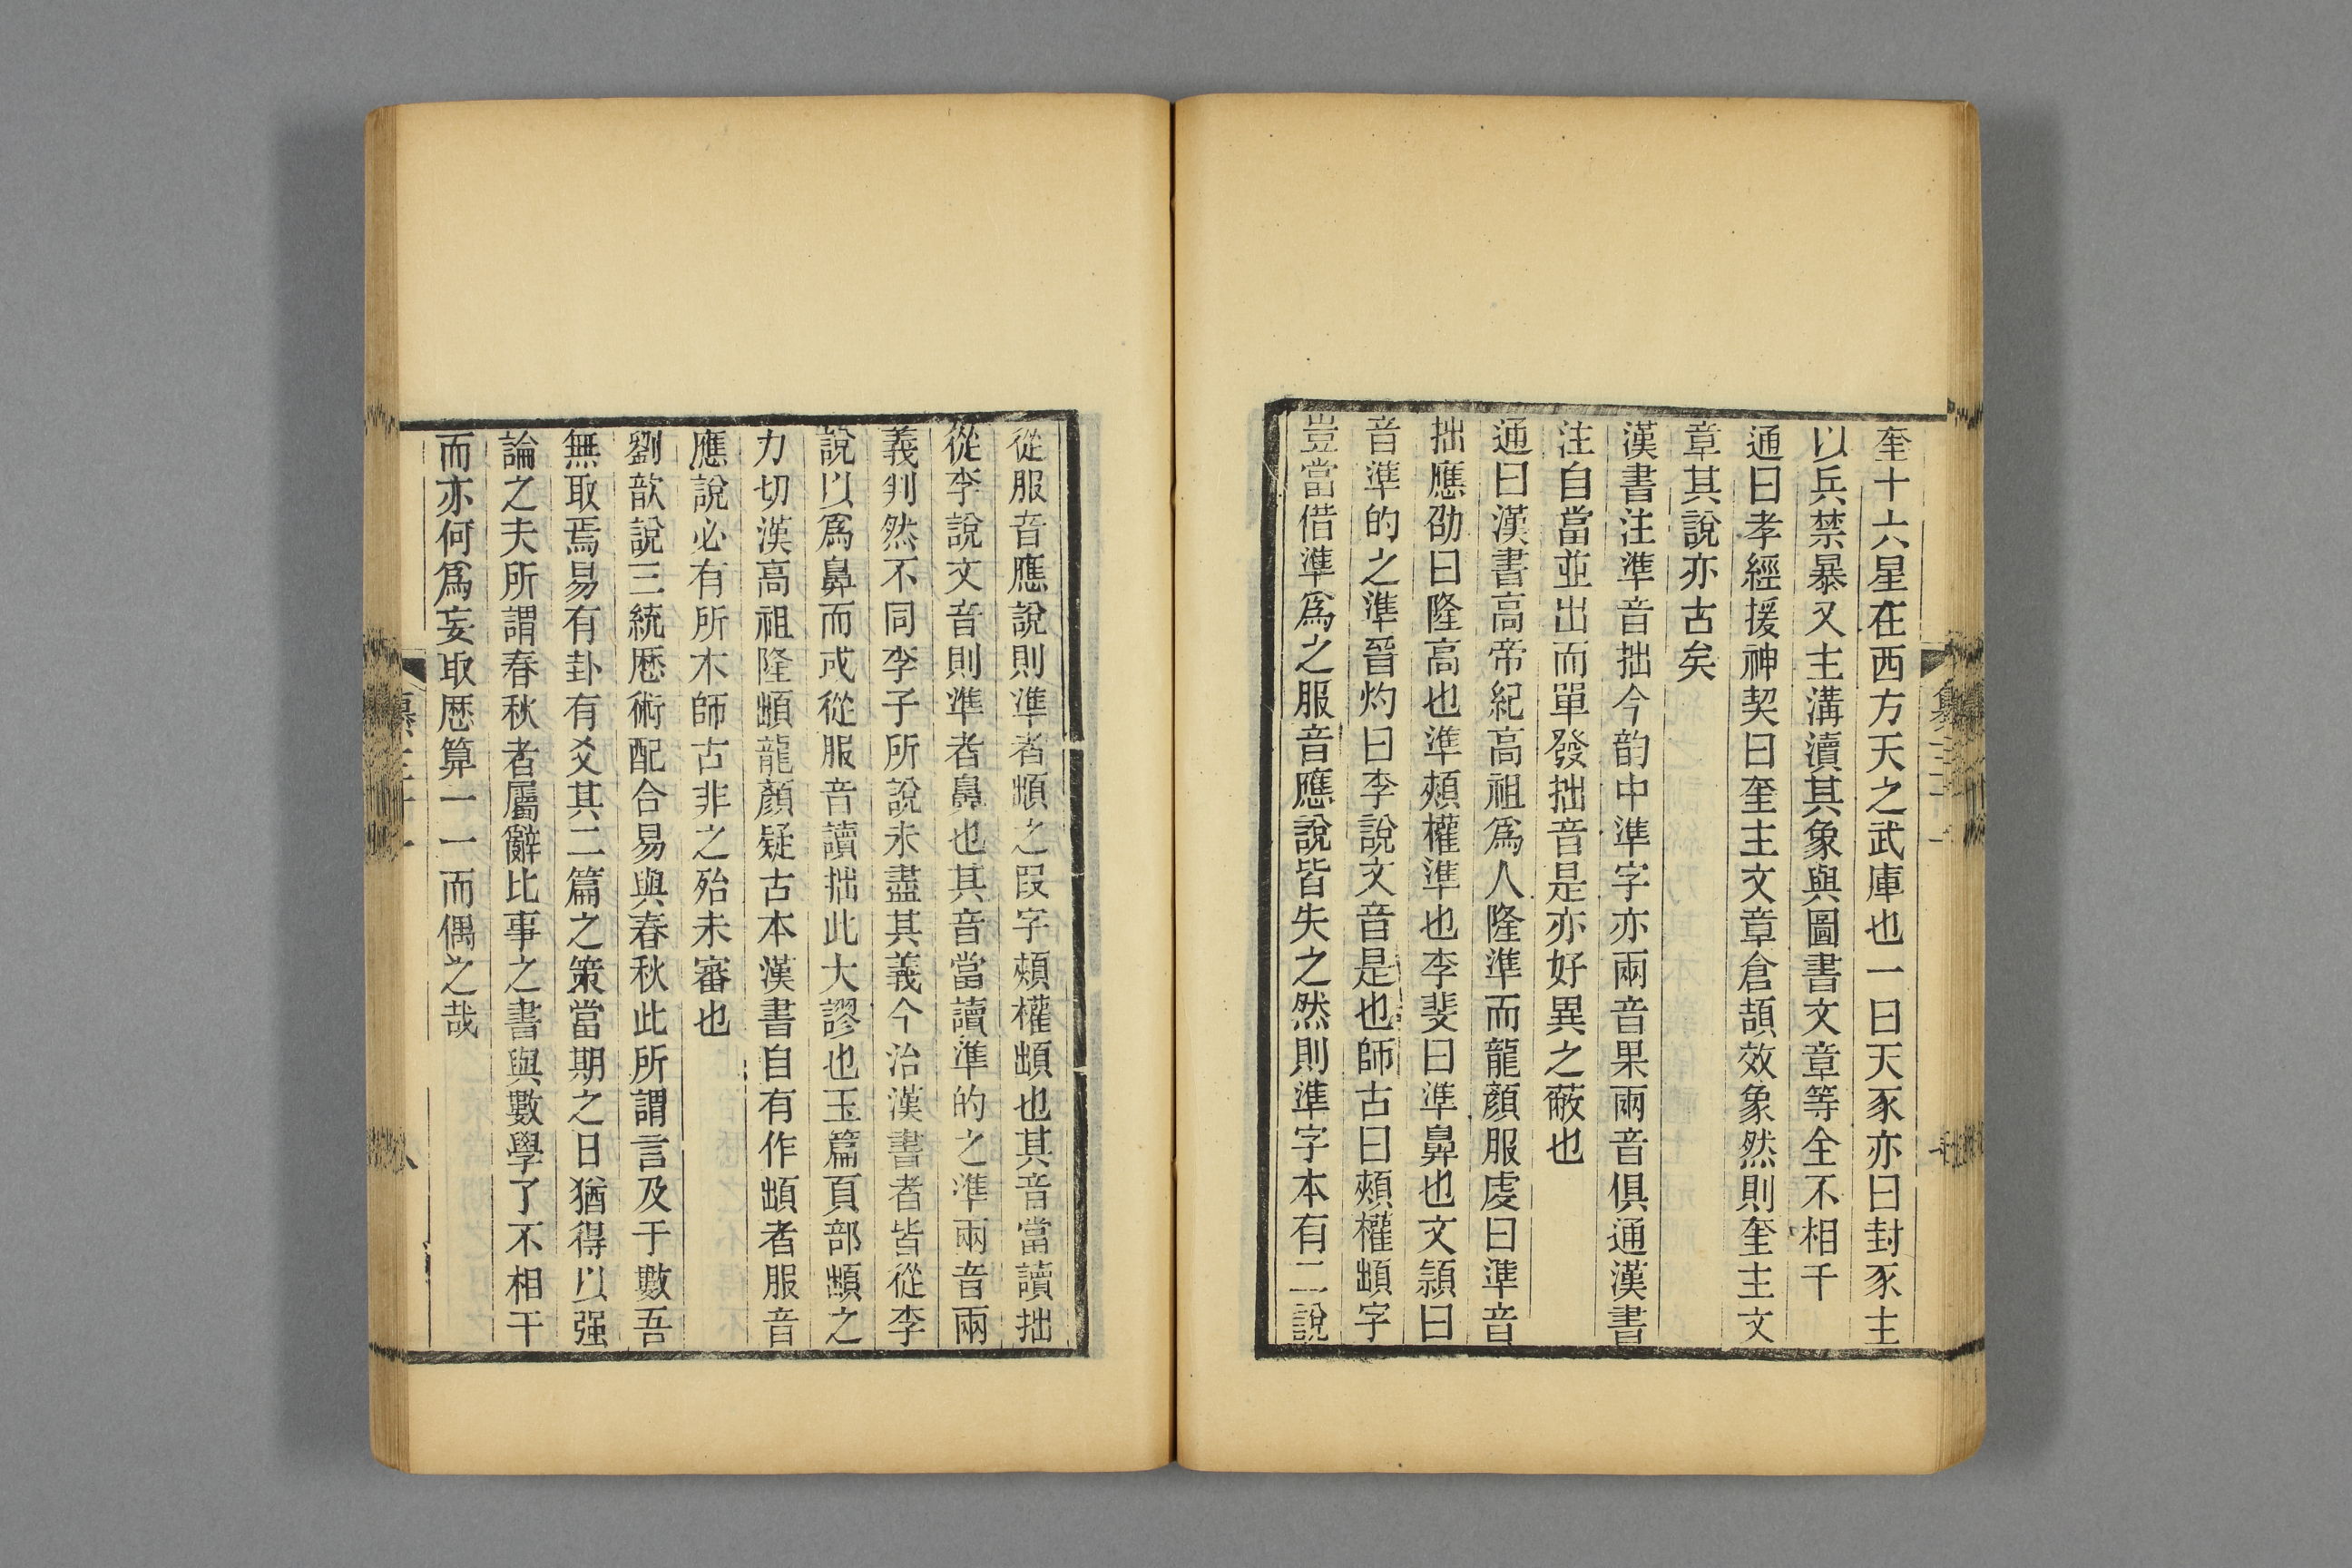 奎十六星在西方天之武庫也一曰天豕亦曰封豕主
以兵禁暴又主溝瀆其象與圖書文章等全不相干
通曰孝經援神契曰奎主文章倉頡效象然則奎主文
章其說亦古矣
漢書注準音拙今韵中準字亦兩音果兩音俱通漢書
注自當並出而單發拙音是亦好異之蔽也
通曰漢書高帝紀高祖爲人隆準而龍顏服虔曰準音
拙應劭曰隆高也準頰權準也李斐曰準鼻也文頴曰
音準的之準晉灼曰李說文音是也師古曰頰權䪼字
豈當借準爲之服音應說皆失之然則準字本有二說
從服音應說則準者䪼之叚字頰權䪼也其音當讀拙
從李說文音則準者鼻也其音當讀準的之準兩音兩
義判然不同李子所說未盡其義今治漢書者皆從李
說以爲鼻而或從服音讀拙此大謬也玉篇頁部䪼之
力切漢高祖隆䪼龍顏疑古本漢書自有作䪼者服音
應說必有所本師古非之殆未審也
劉歆說三統厯術配合易與春秋此所謂言及于數吾
無取焉易有卦有爻其二篇之策當期之日猶得以强
論之夫所謂春秋者屬辭比事之書與數學了不相干
而亦何爲妄取厯算一一而偶之哉
八